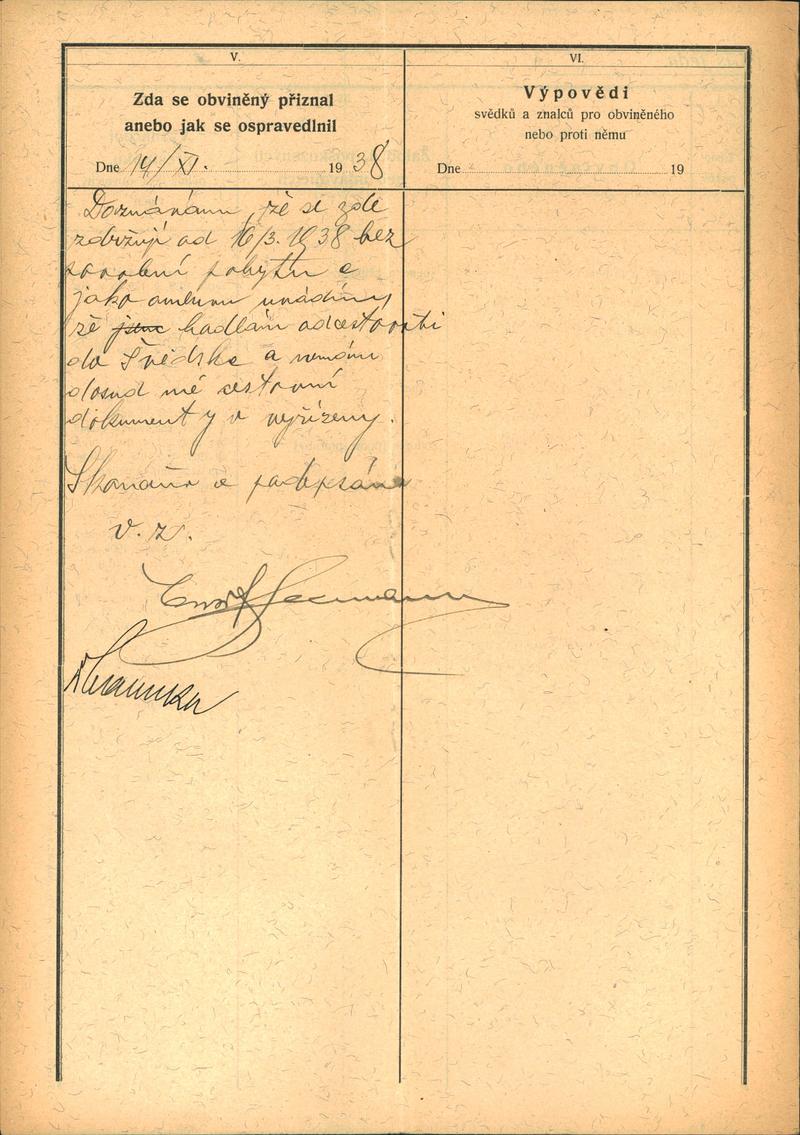 V.
Zda se obviněný přiznal
anebo jak se ospravedlnil
Dne 14/XI. 1938
Doznávám, že se zde
zdržuji od 16/3. 1938 bez
povolení pobytu a
jako omluvu uvádím,
že hodlám odcestovati
do Švédska a nemám
dosud mé cestovní
dokumenty vyřízeny.
Skončeno a podepsáno
v. z.
VI.
Výpovědi
svědků a znalců pro obviněného
nebo proti němu
Dne 19